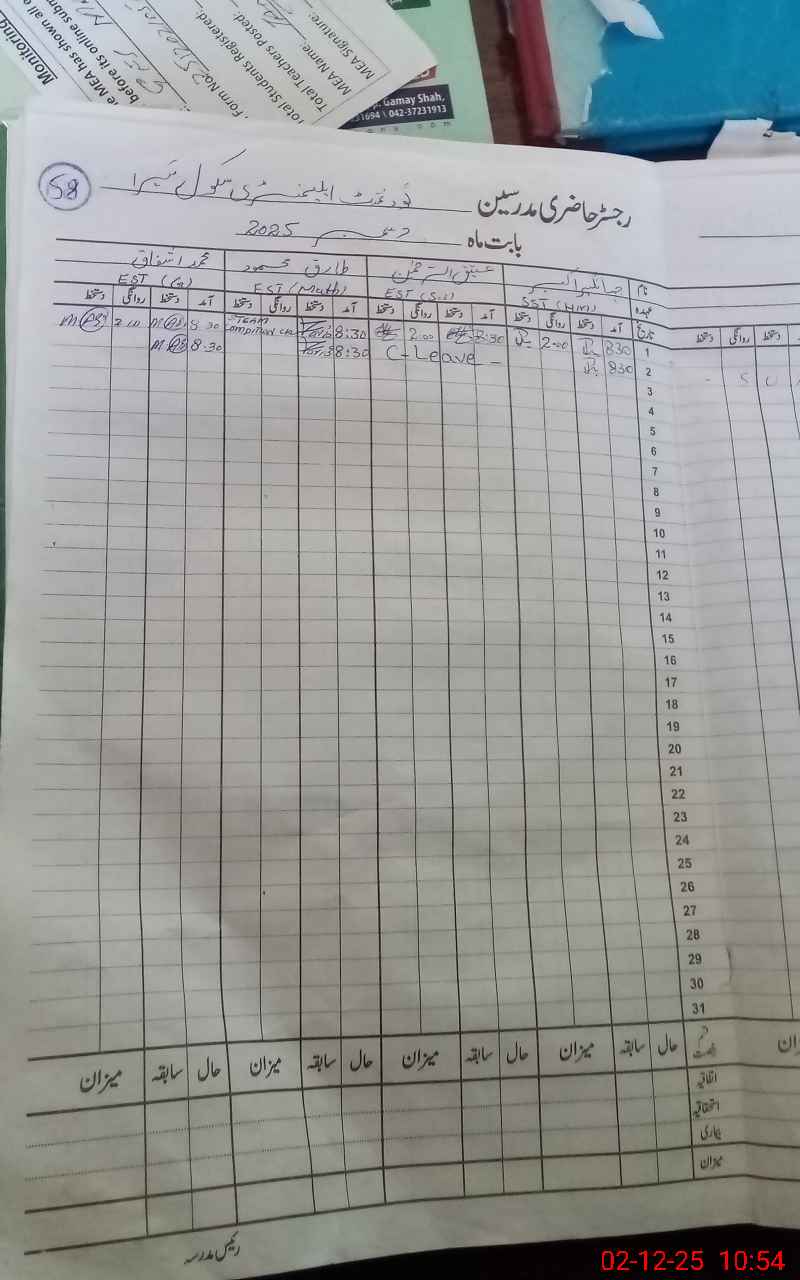 Monitoring
MEA has shown all
before its online subm
Form No
Total Students Registered
Total Teachers Posted:
MEA Name:
MEA Signature:
Gamay Shah,
31694 \ 042-37231913
58
رجسٹر حاضری مدرسین گورنمنٹ ایلیمنٹری سکول
بابت ماہ دسمبر 2025
نام جہانگیر اکبر عتیق الرحمٰن طارق محمود محمد اشفاق
عہدہ SST (HM) EST (Sci) EST (Math) EST
تاریخ آمد دستخط روانگی دستخط آمد دستخط روانگی دستخط آمد دستخط روانگی دستخط آمد دستخط روانگی دستخط
دستخط روانگی دستخط
1 830 2:00 8:30 2:00 8:30 STEAM 8:30
2 830 C-Leave - 8:30 8:30
3
4
5
6
7
8
9
10
11
12
13
14
15
16
17
18
19
20
21
22
23
24
25
26
27
28
29
30
31
قسم رخصت حال سابقہ میزان حال سابقہ میزان حال سابقہ میزان حال سابقہ میزان
اتفاقیہ
استحقاقیہ
بیماری
میزان
رئیس مدرسہ
02-12-25 10:54